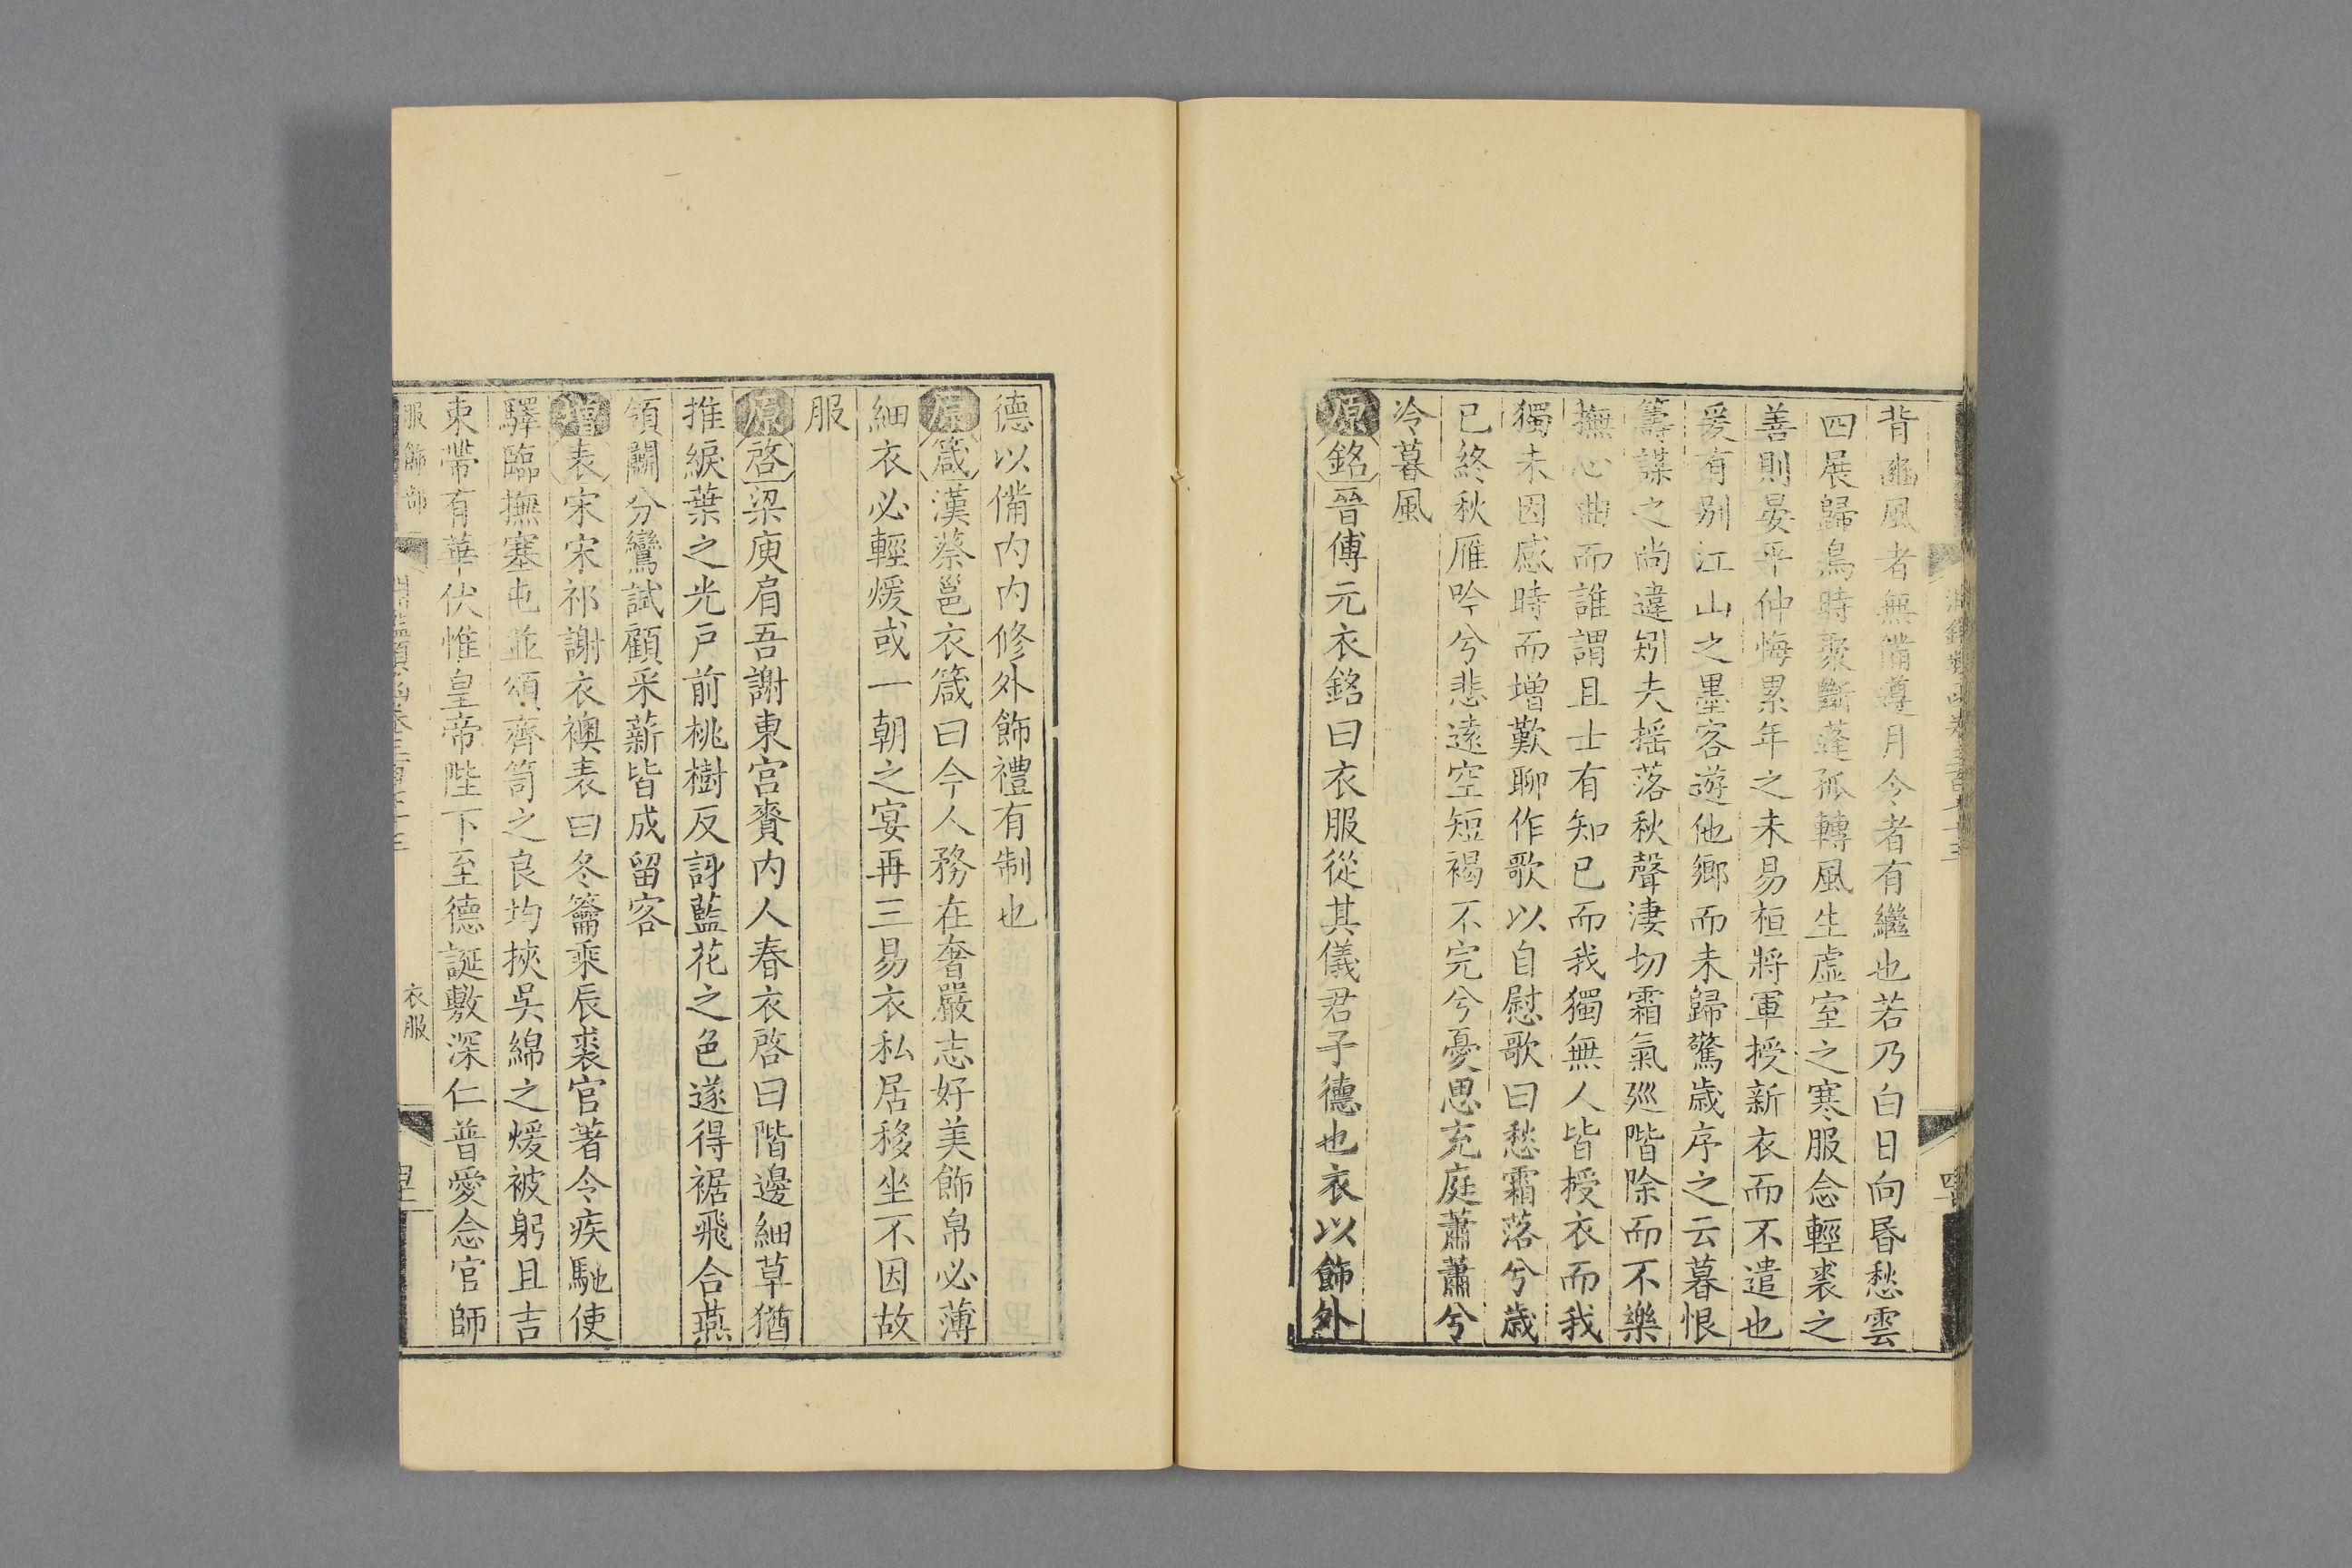 背豳風者無備遵月令者有繼也若乃白日向昏愁雲
四展歸鳥時聚斷蓬孤轉風生虛室之寒服念輕裘之
善則晏平仲悔累年之未易桓將軍授新衣而不遣也
爰有别江山之墨客遊他鄉而未歸驚歲序之云暮恨
籌謀之尚違矧夫摇落秋聲淒切霜氣廵階除而不樂
撫心曲而誰謂且士有知已而我獨無人皆授衣而我
獨未因感時而增歎聊作歌以自慰歌曰愁霜落兮歲
已終秋雁吟兮悲遠空短褐不完兮憂思充庭蕭蕭兮
冷暮風
原銘晉傅元衣銘曰衣服從其儀君子德也衣以飾外
德以備内内修外飾禮有制也
原箴漢蔡邕衣箴曰今人務在奢嚴志好美飾帛必薄
細衣必輕煖或一朝之宴再三易衣私居移坐不因故
服
原啓梁庾肩吾謝東宫賚内人春衣啓曰階邊細草猶
推綟葉之光戸前桃樹反訝藍花之色遂得裾飛合燕
領鬭分鸞試顧采薪皆成留客
增表宋宋祁謝衣襖表曰冬籥乘辰裘官著令疾馳使
驛臨撫塞屯並頒齊笥之良均挾吳綿之煖被躬且吉
束帶有華伏惟皇帝陛下至德誕敷深仁普愛念官師
服飾部
衣服